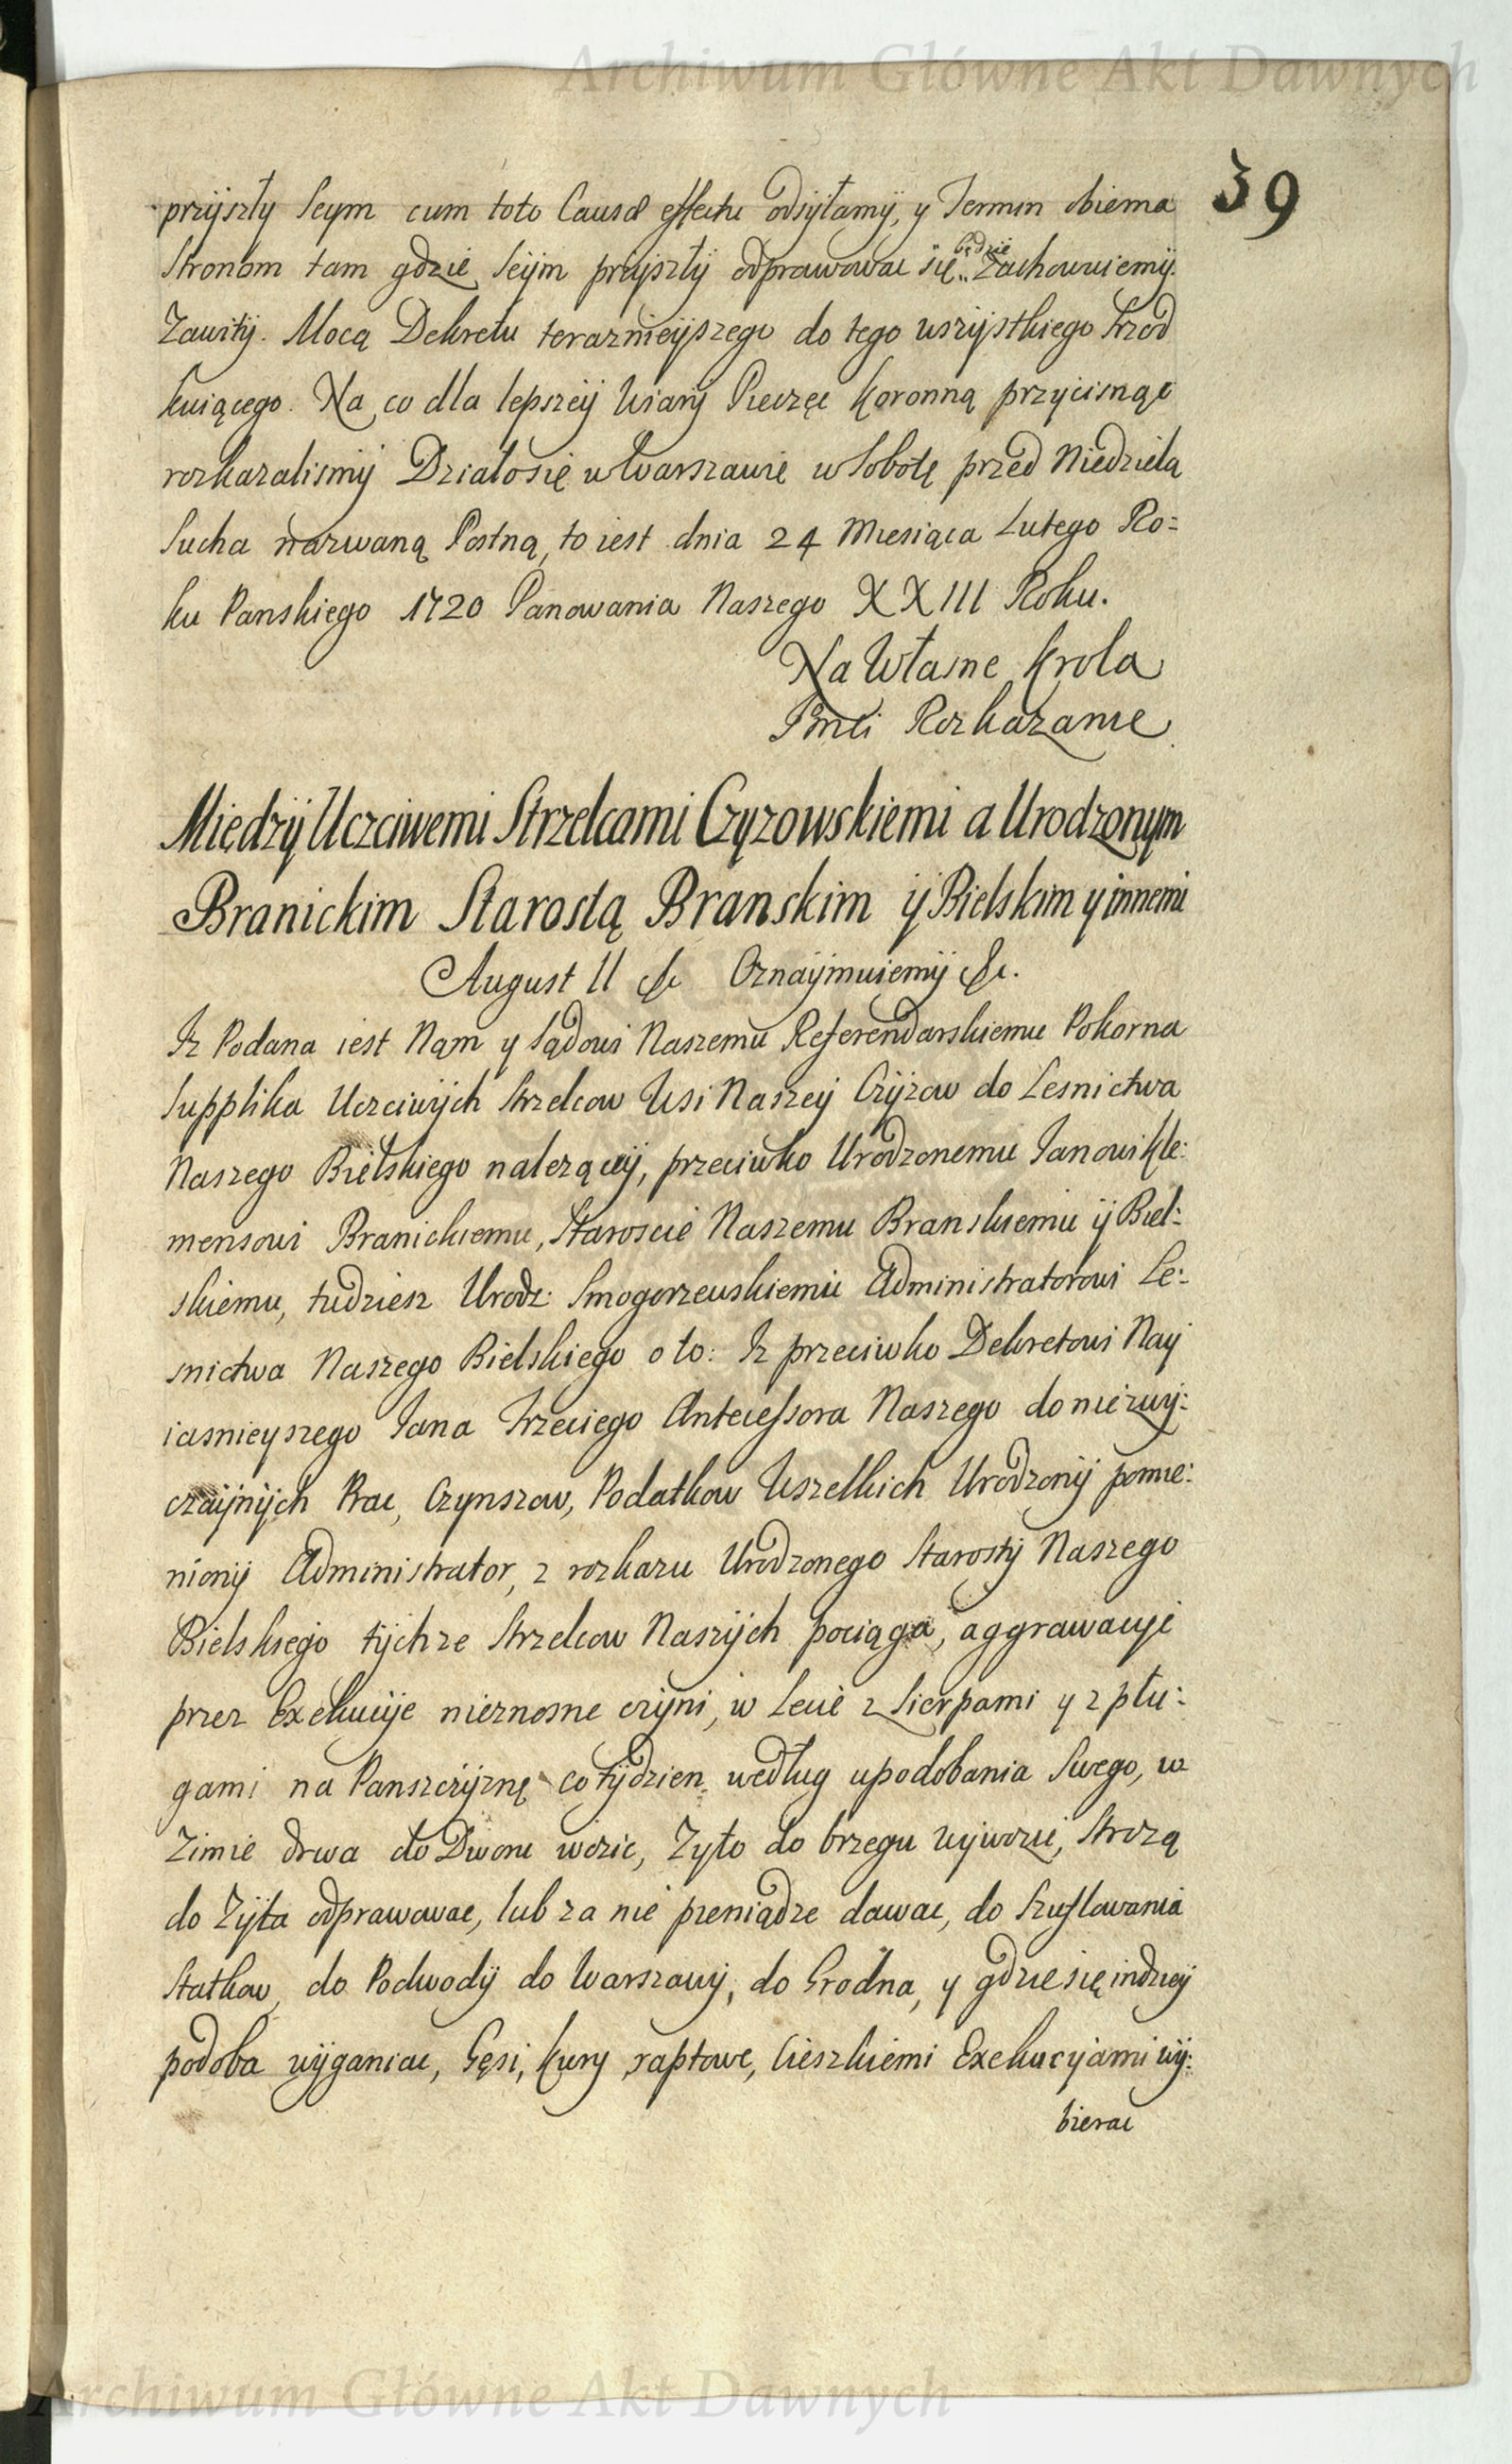 Archiwum Główne Akt Dawnych
39
przyszły Seym cum toto Causæ effectu odsyłamy, y Termin obiema
Stronom tam gdzie Seijm przyszły odprawowac się będzie Zachowuiemy
Zawity. Mocą Dekretu teraznieyszego do tego wszystkiego Srzod
kuiącego. Na co dla lepszey Wiary Pieczęc Koronną przycisnąc
rozkazalismy Działosię w Warszawie w Sobotę przed Niedzielą
Sucha nazwaną Postną, to iest dnia 24 Miesiąca Lutego Ro:
ku Panskiego 1720 Panowania Naszego XXIII Roku.
Na Własne Krola
Jmci Rozkazanie
Między Uczciwemi Strzelcami Czyzowskiemi a Urodzonym
Branickim Starostą Branskim y Bielskim y innemi
August II &c Oznaymuiemy &c.
Iz Podana iest Nam y Sądowi Naszemu Referendarskiemu Pokorna
Supplika Uczciwych Strzelcow Wsi Naszey Czyzow do Lesnictwa
Naszego Bielskiego nalezącey, przeciwko Urodzonemu Janowi Kle:
mensowi Branickiemu, Staroscie Naszemu Branskiemu y Biel:
skiemu, tudziesz Urodz: Smogorzewskiemu Administratorowi Le:
snictwa Naszego Bielskiego o to: Iz przeciwko Dekretowi Nay
iasnieyszego Jana Trzeciego Antecessora Naszego do niezwy:
czaynych Prac, Czynszow, Podatkow Wszelkich Urodzony pomie:
niony Administrator, z rozkazu Urodzonego Starosty Naszego
Bielskiego tychze Strzelcow Naszych pociąga, aggrawacye
przez Exekucye nieznosne czyni, w Lecie z Sierpami y z płu:
gami na Panszczyznę co tydzien według upodobania Swego, w
Zimie drwa do Dworu wozic, Zyto do brzegu wywozic, Strozą
do Zyta odprawowac, lub za nie pieniądze dawac, do Szuflowania
Statkow, do Podwody do Warszawy, do Grodna, y gdzie się indziey
podoba wyganiac, Gęsi, Kury raptowe, Cieszkiemi Exekucyiami wy:
bierac
Archiwum Główne Akt Dawnych